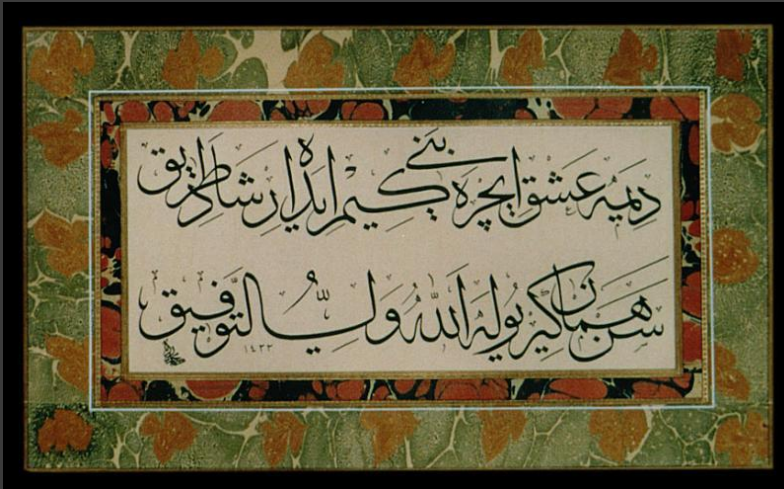 دیمه عشق ایچره بنی كیم ایده ارشاد طریق
سن همان گیر یوله الله ولی التوفیق
١٤٣٣